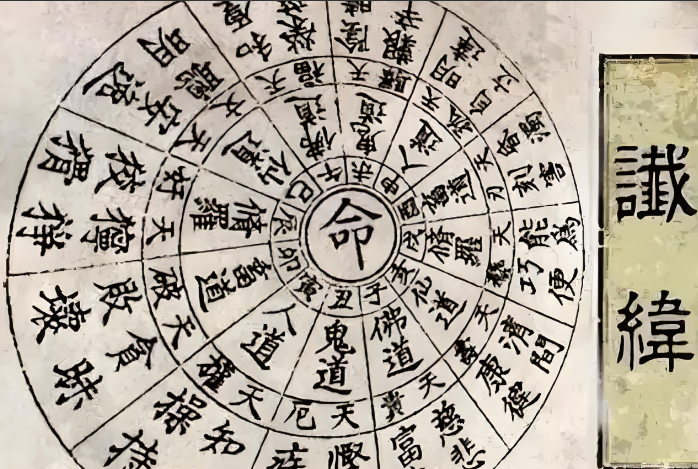 讖緯
命
子
丑
寅
卯
辰
巳
午
未
申
酉
戌
亥
佛道
鬼道
人道
畜道
修羅
仙道
佛道
鬼道
人道
畜道
修羅
仙道
天貴
天厄
天權
天破
天好
天文
天福
天驛
天孤
天刃
天藝
天壽
慈悲
富
慳
知
操持
貪財
敗壞
狡猾
聰明
能為
巧便
濟間
康健